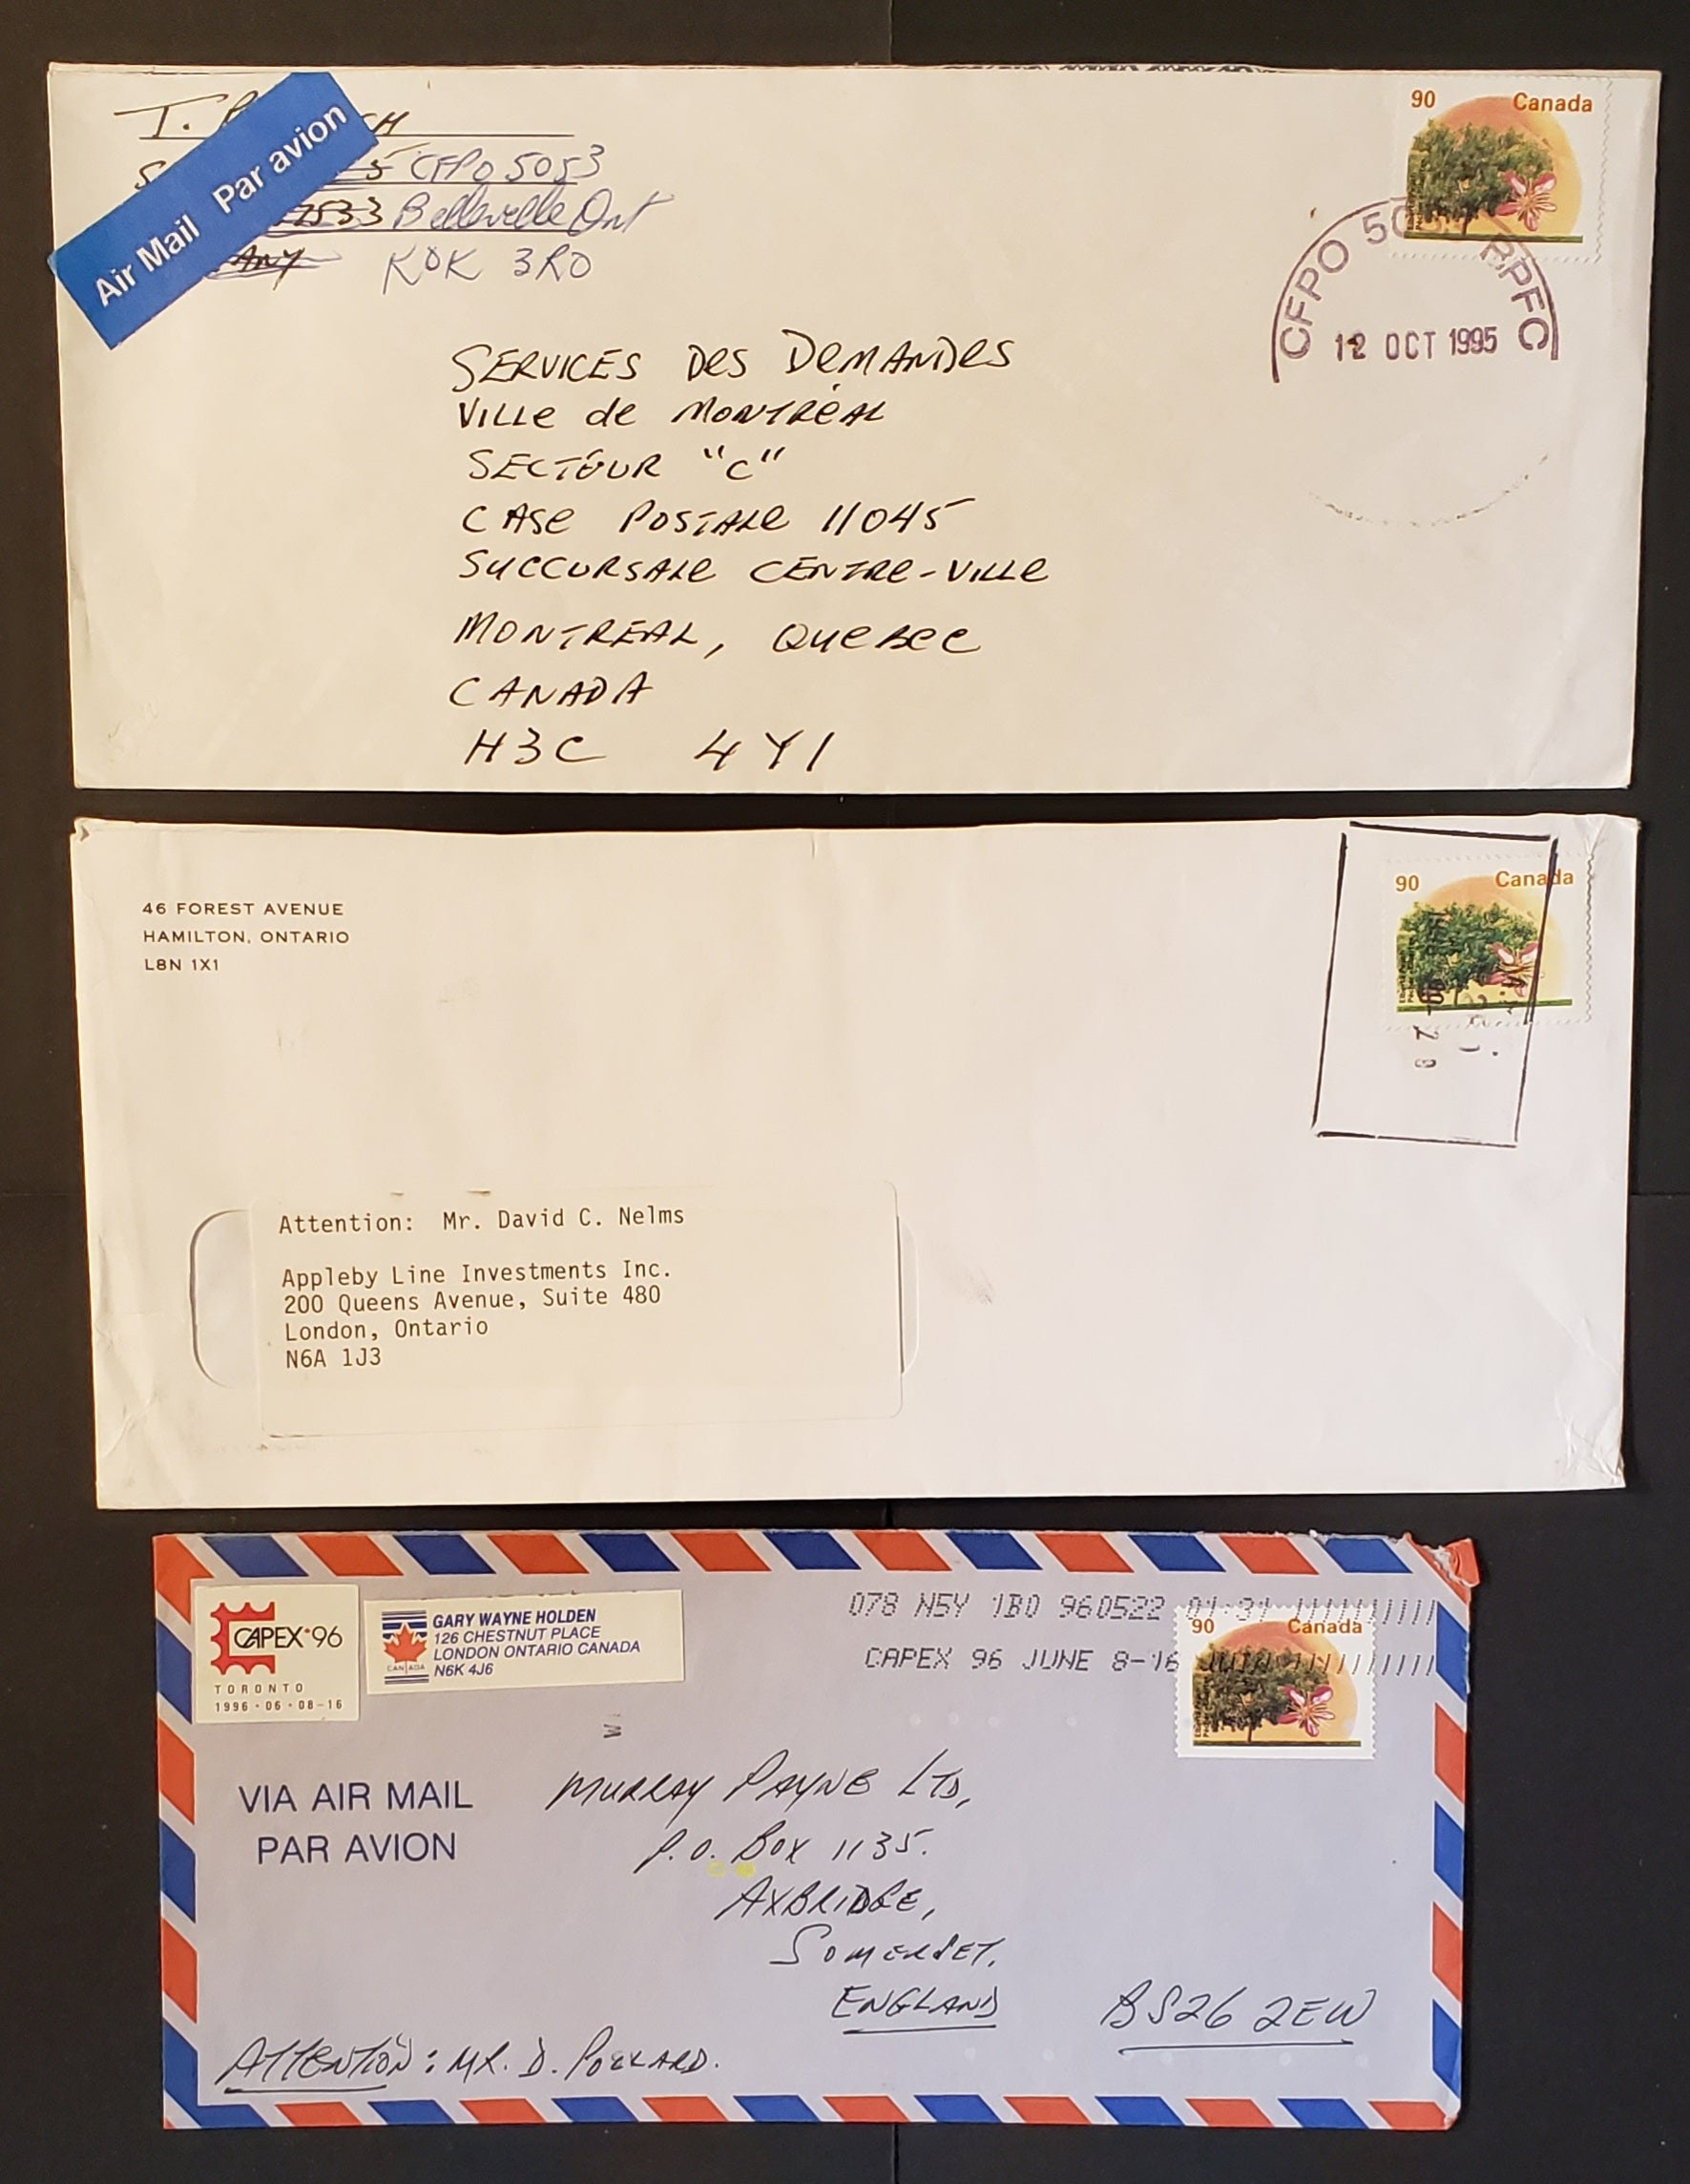 T.
CFPO 5053
Belleville Ont
K0K 3R0
Air Mail Par avion
90 Canada
CFPO RPFC
12 OCT 1995
SERVICES DES DEMANDES
VILLE de MONTRÉAL
SECTEUR "C"
CASE POSTALE 11045
SUCCURSALE CENTRE-VILLE
MONTREAL, QUEBEC
CANADA
H3C 4Y1
46 FOREST AVENUE
HAMILTON, ONTARIO
L8N 1X1
90 Canada
Attention: Mr. David C. Nelms
Appleby Line Investments Inc.
200 Queens Avenue, Suite 480
London, Ontario
N6A 1J3
CAPEX·96
TORONTO
1996·06·08-16
CANADA
GARY WAYNE HOLDEN
126 CHESTNUT PLACE
LONDON ONTARIO CANADA
N6K 4J6
078 N5Y 1B0 960522 01:31
CAPEX 96 JUNE 8-16 JUIN
90 Canada
VIA AIR MAIL
PAR AVION
MURRAY PAYNE LTD,
P.O. BOX 1135.
AXBRIDGE,
SOMERSET,
ENGLAND BS26 2EW
ATTENTION: MR. D. POCKARD.